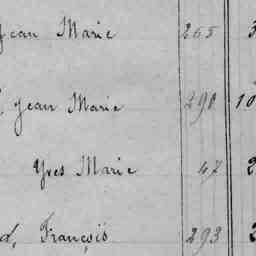 Jean Marie 265 3
Jean Marie 290 10
Yves Marie 47 2
d, François 293 2